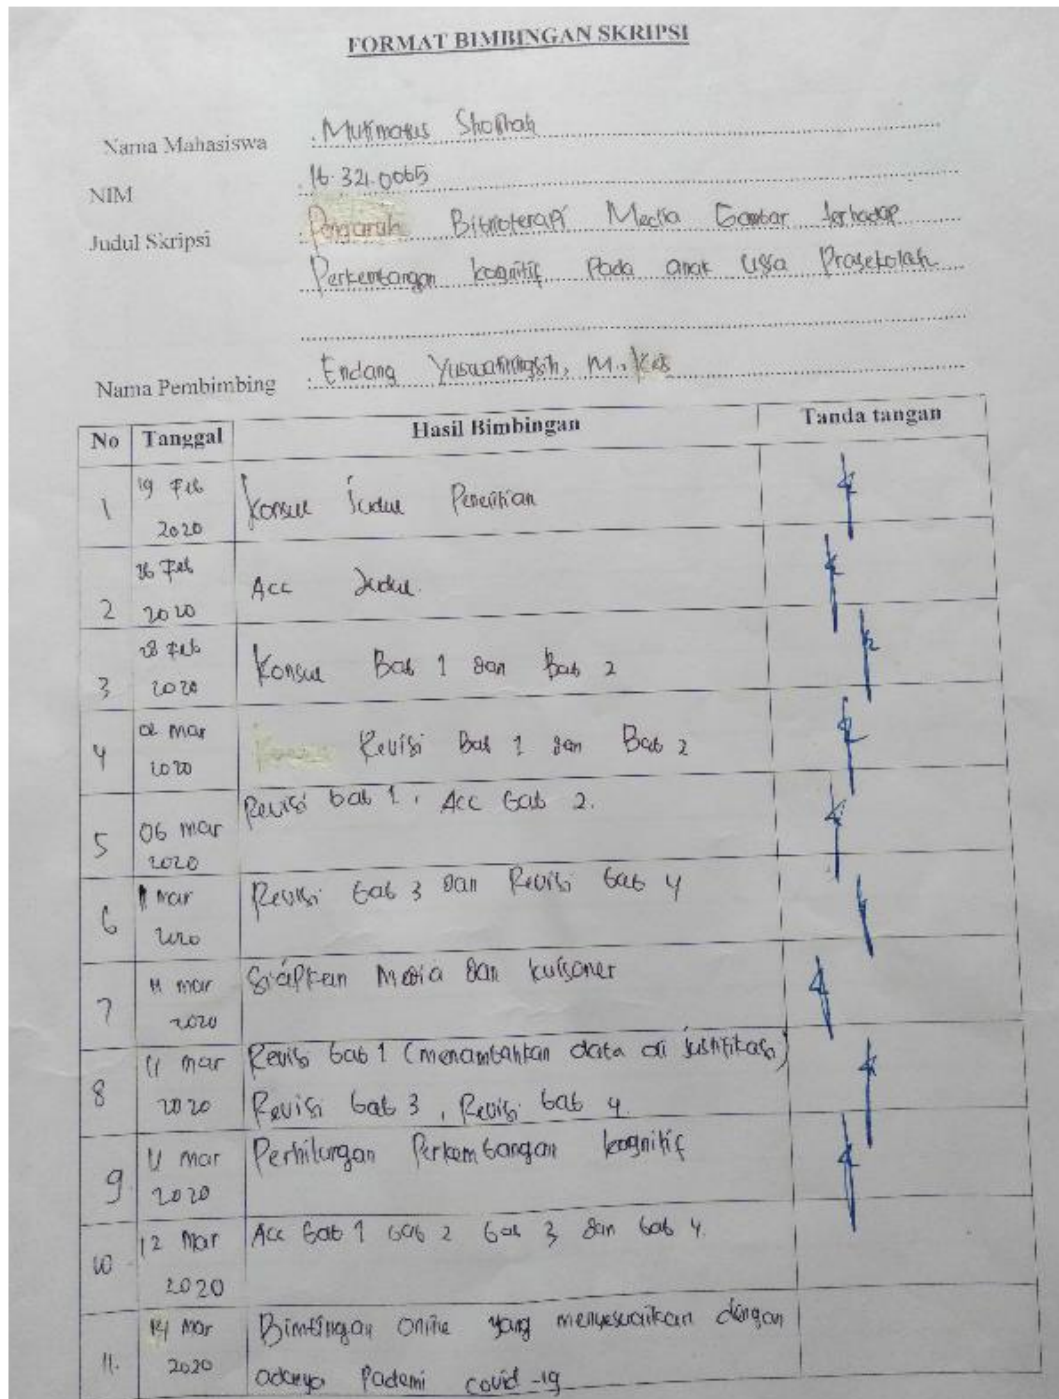 FORMAT BIMBINGAN SKRIPSI
Nama Mahasiswa : Mutimatus Sholihah
NIM : 16.321.0065
Judul Skripsi : Pengaruh Biblioterapi Media Gambar terhadap
Perkembangan kognitif Pada anak usia Prasekolah
Nama Pembimbing : Endang Yuswatiningsih, M.Kes
No Tanggal Hasil Bimbingan Tanda tangan
1 19 Feb 2020 Konsul Judul Penelitian
2 26 Feb 2020 Acc Judul.
3 28 Feb 2020 Konsul Bab 1 dan Bab 2
4 02 Mar 2020 Revisi Bab 1 dan Bab 2
5 06 Mar 2020 Revisi bab 1, Acc bab 2.
6 Mar 2020 Revisi bab 3 dan Revisi bab 4
7 11 Mar 2020 Siapkan Media dan kuisoner
8 11 Mar 2020 Revisi bab 1 (menambahkan data di justifikasi)
Revisi bab 3, Revisi bab 4.
9 11 Mar 2020 Perhitungan Perkembangan kognitif
10 12 Mar 2020 Acc bab 1 bab 2 bab 3 dan bab 4.
11. 14 Mar 2020 Bimbingan online yang menyesuaikan dengan
adanya Pademi covid-19